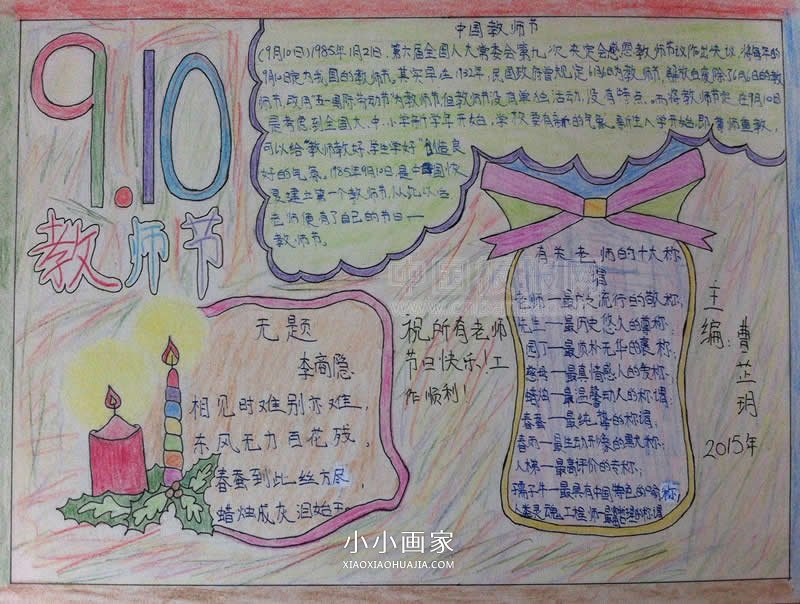 9.10
教师节
中国教师节
(9月10日)1985年1月21日,第六届全国人大常委会第九次
9月10日定为我国的教师节。其实早在1932年,民国政府曾规定6月6日为教师节,解放后废除了6月6日的教
师节,改用五一国际劳动节为教师节,但教师节没有单独活动,没有特点。而将教师节定在9月10日
是考虑到全国大、中、小学新学年开始,学校要有新的气氛。新生入学开始,即尊师重教,
可以给"教师教好,学生学好"创造良
好的气氛。1985年9月10日,是中国恢
复建立第一个教师节,从此以后
老师便有了自己的节日—
教师节。
无题
李商隐
相见时难别亦难,
东风无力百花残。
春蚕到此丝方尽,
蜡烛成灰泪始干
祝所有老师
节日快乐!工
作顺利!
有关老师的十大称
谓
老师—最广泛流行的敬称;
先生—最历史悠久的尊称;
园丁—最质朴无华的褒称;
慈母—最真情感人的专称;
蜡烛—最温馨动人的称谓;
春蚕—最纯挚的称谓;
春雨—最生动形象的默称;
人梯—最高评价的专称;
孺子牛—最具有中国特色的喻称;
人类灵魂工程师—最富哲理的称谓
主编:曹芷玥
2015年
小小画家
XIAOXIAOHUAJIA.COM